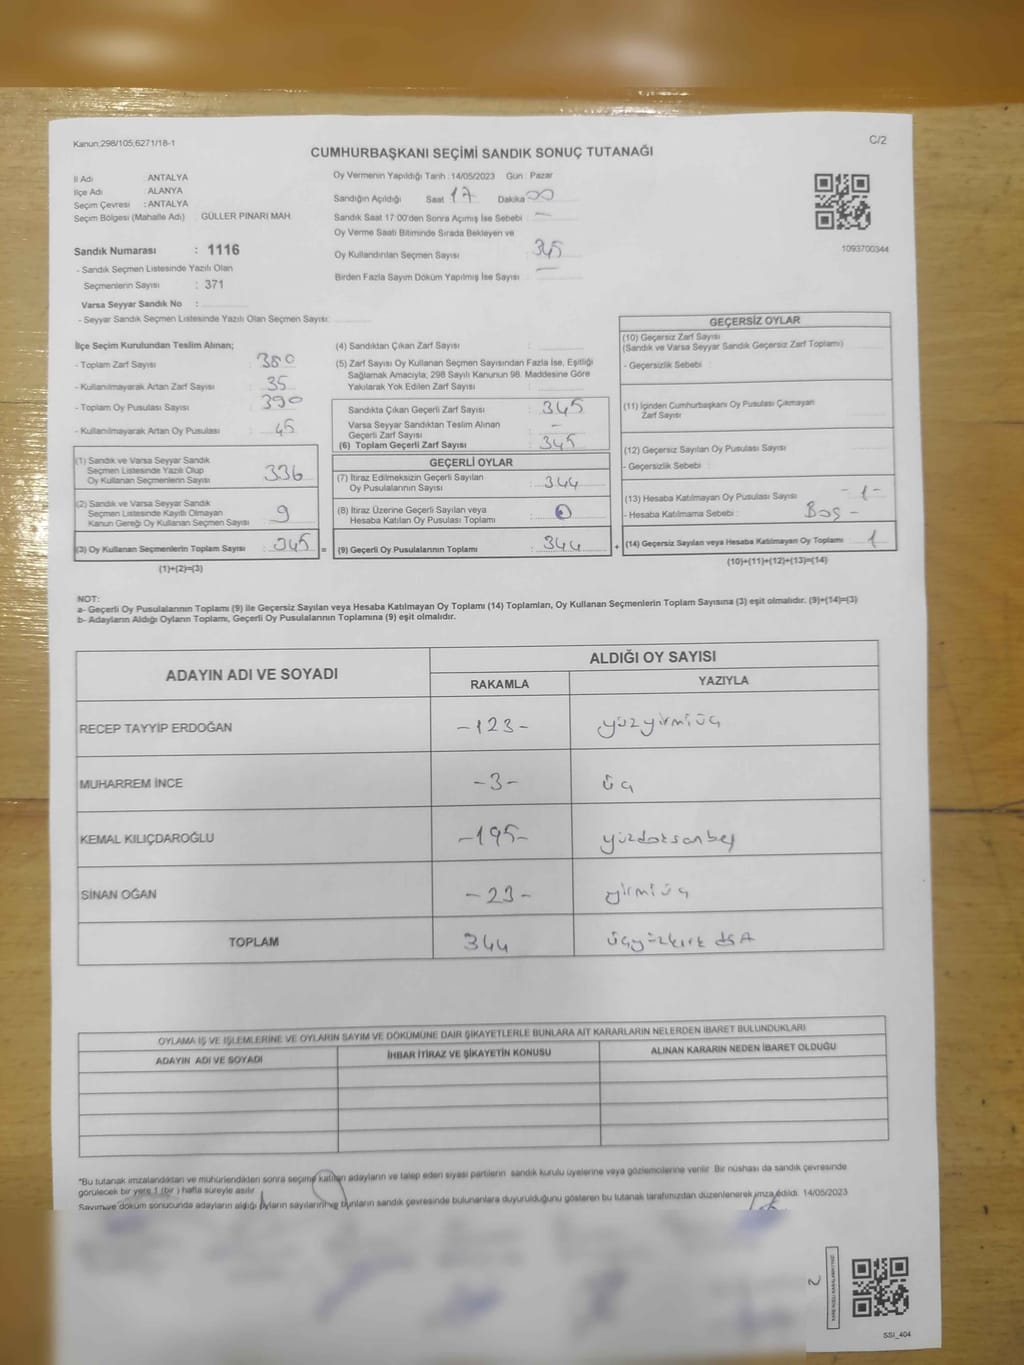 Kanun;298/105,6271/18-1
C/2
CUMHURBAŞKANI SEÇİMİ SANDIK SONUÇ TUTANAĞI
İl Adı : ANTALYA
İlçe Adı : ALANYA
Seçim Çevresi : ANTALYA
Seçim Bölgesi (Mahalle Adı) GÜLLER PINARI MAH.
Sandık Numarası : 1116
- Sandık Seçmen Listesinde Yazılı Olan
Seçmenlerin Sayısı : 371
Varsa Seyyar Sandık No :
- Seyyar Sandık Seçmen Listesinde Yazılı Olan Seçmen Sayısı:
Oy Vermenin Yapıldığı Tarih :14/05/2023 Gün : Pazar
Sandığın Açıldığı Saat 17 Dakika 00
Sandık Saat 17:00'den Sonra Açımış İse Sebebi : —
Oy Verme Saati Bitiminde Sırada Bekleyen ve
Oy Kullandırılan Seçmen Sayısı : 345
Birden Fazla Sayım Döküm Yapılmış İse Sayısı : —
1093700344
İlçe Seçim Kurulundan Teslim Alınan;
- Toplam Zarf Sayısı : 380
- Kullanılmayarak Artan Zarf Sayısı : 35
- Toplam Oy Pusulası Sayısı : 390
- Kullanılmayarak Artan Oy Pusulası : 45
(1) Sandık ve Varsa Seyyar Sandık
Seçmen Listesinde Yazılı Olup
Oy Kullanan Seçmenlerin Sayısı : 336
(2) Sandık ve Varsa Seyyar Sandık
Seçmen Listesinde Kayıtlı Olmayan
Kanun Gereği Oy Kullanan Seçmen Sayısı : 9
(3) Oy Kullanan Seçmenlerin Toplam Sayısı : 345 =
(1)+(2)=(3)
(4) Sandıktan Çıkan Zarf Sayısı :
(5) Zarf Sayısı Oy Kullanan Seçmen Sayısından Fazla İse, Eşitliği
Sağlamak Amacıyla, 298 Sayılı Kanunun 98. Maddesine Göre
Yakılarak Yok Edilen Zarf Sayısı :
Sandıkta Çıkan Geçerli Zarf Sayısı : 345
Varsa Seyyar Sandıktan Teslim Alınan
Geçerli Zarf Sayısı : —
(6) Toplam Geçerli Zarf Sayısı : 345
GEÇERLİ OYLAR
(7) İtiraz Edilmeksizin Geçerli Sayılan
Oy Pusulalarının Sayısı : 344
(8) İtiraz Üzerine Geçerli Sayılan veya
Hesaba Katılan Oy Pusulası Toplamı :
(9) Geçerli Oy Pusulalarının Toplamı : 344 +
GEÇERSİZ OYLAR
(10) Geçersiz Zarf Sayısı
(Sandık ve Varsa Seyyar Sandık Geçersiz Zarf Toplamı)
- Geçersizlik Sebebi :
(11) İçinden Cumhurbaşkanı Oy Pusulası Çıkmayan
Zarf Sayısı
(12) Geçersiz Sayılan Oy Pusulası Sayısı
- Geçersizlik Sebebi :
(13) Hesaba Katılmayan Oy Pusulası Sayısı -1-
- Hesaba Katılmama Sebebi : Boş -
(14) Geçersiz Sayılan veya Hesaba Katılmayan Oy Toplamı : 1
(10)+(11)+(12)+(13)=(14)
NOT:
a- Geçerli Oy Pusulalarının Toplamı (9) ile Geçersiz Sayılan veya Hesaba Katılmayan Oy Toplamı (14) Toplamları, Oy Kullanan Seçmenlerin Toplam Sayısına (3) eşit olmalıdır. (9)+(14)=(3)
b- Adayların Aldığı Oyların Toplamı, Geçerli Oy Pusulalarının Toplamına (9) eşit olmalıdır.
ADAYIN ADI VE SOYADI ALDIĞI OY SAYISI
RAKAMLA YAZIYLA
RECEP TAYYİP ERDOĞAN -123- yüzyirmiüç
MUHARREM İNCE -3- üç
KEMAL KILIÇDAROĞLU -195- yüzdoksanbeş
SİNAN OĞAN -23- yirmiüç
TOPLAM 344 üçyüzkırk
OYLAMA İŞ VE İŞLEMLERİNE VE OYLARIN SAYIM VE DÖKÜMÜNE DAİR ŞİKAYETLERLE BUNLARA AİT KARARLARIN NELERDEN İBARET BULUNDUKLARI
ADAYIN ADI VE SOYADI İHBAR İTİRAZ VE ŞİKAYETİN KONUSU ALINAN KARARIN NEDEN İBARET OLDUĞU
"Bu tutanak imzalandıktan ve mühürlendikten sonra seçime katılan adayların ve talep eden siyasi partilerin sandık kurulu üyelerine veya gözlemcilerine verilir. Bir nüshası da sandık çevresinde
görülecek bir yere 1 (bir ) hafta süreyle asılır.
Sayım ve döküm sonucunda adayların aldığı oyların sayılarını ve bunların sandık çevresinde bulunanlara duyurulduğunu gösteren bu tutanak tarafımızdan düzenlenerek imza edildi. 14/05/2023
2
SSI_404